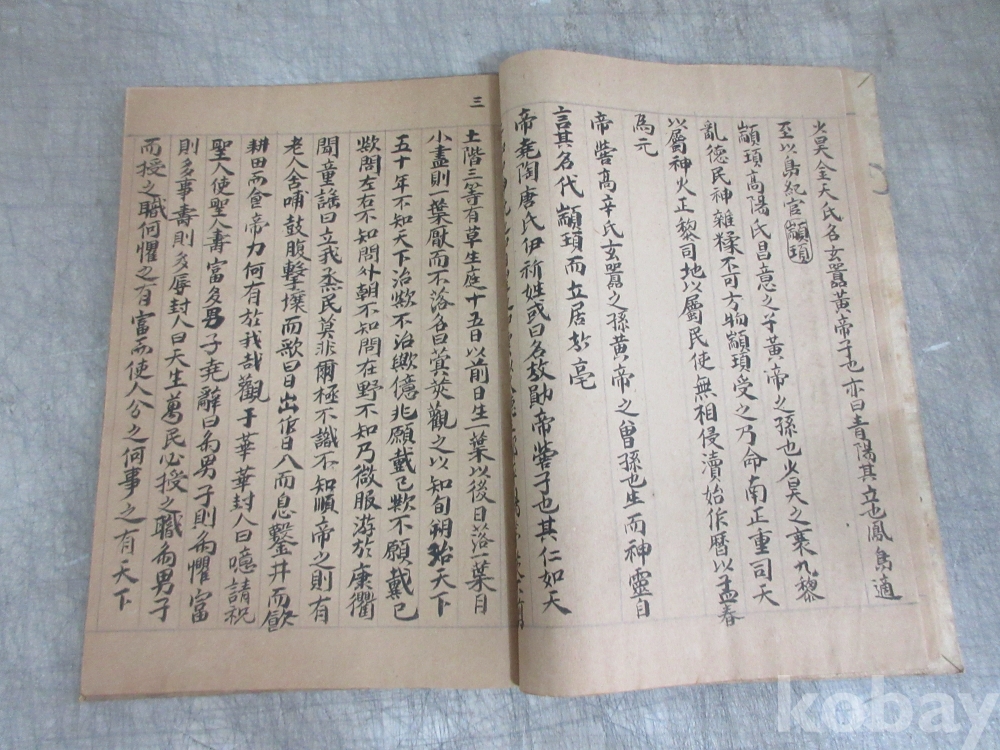 少昊金天氏名玄囂黃帝子也亦曰青陽其立也鳳鳥適
至以鳥紀官顓頊
顓頊高陽氏昌意之子黃帝之孫也少昊之衰九黎
亂德民神雜糅不可方物顓頊受之乃命南正重司天
以屬神火正黎司地以屬民使無相侵瀆始作曆以孟春
爲元
帝嚳高辛氏玄囂之孫黃帝之曾孫也生而神靈自
言其名代顓頊而立居於亳
帝堯陶唐氏伊祈姓或曰名放勛帝嚳子也其仁如天
三
土階三等有草生庭十五日以前日生一葉以後日落一葉月
小盡則一葉厭而不落名曰蓂莢觀之以知旬朔治天下
五十年不知天下治歟不治歟億兆願戴己歟不願戴己
歟問左右不知問外朝不知問在野不知乃微服游於康衢
聞童謠曰立我烝民莫非爾極不識不知順帝之則有
老人含哺鼓腹擊壤而歌曰日出作日入而息鑿井而飲
耕田而食帝力何有於我哉觀于華華封人曰噫請祝
聖人使聖人壽富多男子堯辭曰多男子則多懼富
則多事壽則多辱封人曰天生萬民必授之職多男子
而授之職何懼之有富而使人分之何事之有天下
kobay